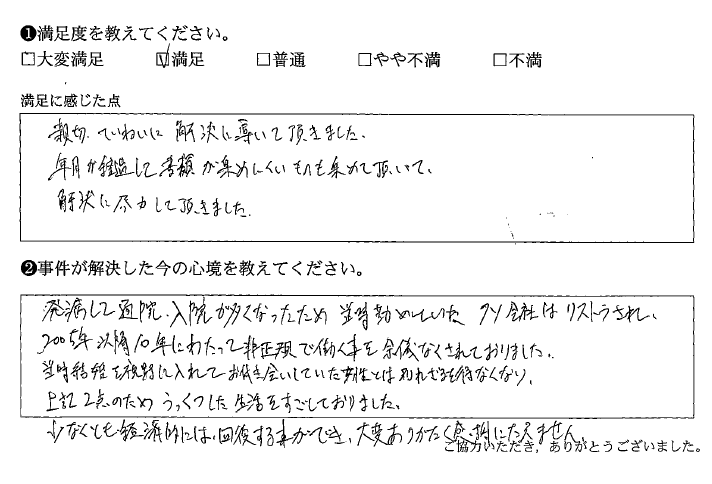 ❶満足度を教えてください。
□大変満足 ☑満足 □普通 □やや不満 □不満
満足に感じた点
親切、ていねいに 解決に導いて頂きました。
年月が経過して書類が集めにくいものも集めて頂いて、
解決に尽力して頂きました。
❷事件が解決した今の心境を教えてください。
発病して通院、入院が多くなったため 当時勤めていた クソ会社は リストラされ、
2005年以降10年にわたって非正規で働く事を余儀なくされておりました。
当時結婚を視野に入れてお付き合いしていた女性とは別れざるを得なくなり、
上記2点のため うっくつした生活をすごしておりました。
少なくとも経済的には、回復する事ができ、大変ありがたく感謝にたえません。
ご協力いただき，ありがとうございました。